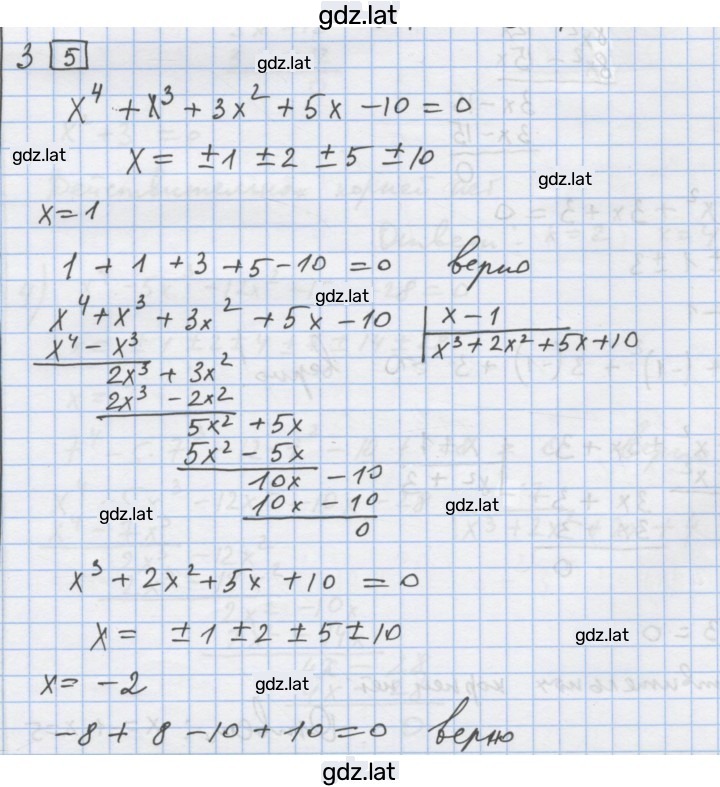 gdz.lat
3 5
gdz.lat
x⁴ + x³ + 3x² + 5x - 10 = 0
gdz.lat
x = ±1 ±2 ±5 ±10
gdz.lat
x = 1
1 + 1 + 3 + 5 - 10 = 0 верно
gdz.lat
x⁴ + x³ + 3x² + 5x - 10 | x - 1
x⁴ - x³ | x³ + 2x² + 5x + 10
2x³ + 3x²
2x³ - 2x²
5x² + 5x
5x² - 5x
10x - 10
10x - 10
gdz.lat gdz.lat
0
x³ + 2x² + 5x + 10 = 0
x = ±1 ±2 ±5 ±10
gdz.lat
x = -2
gdz.lat
-8 + 8 - 10 + 10 = 0 верно
gdz.lat